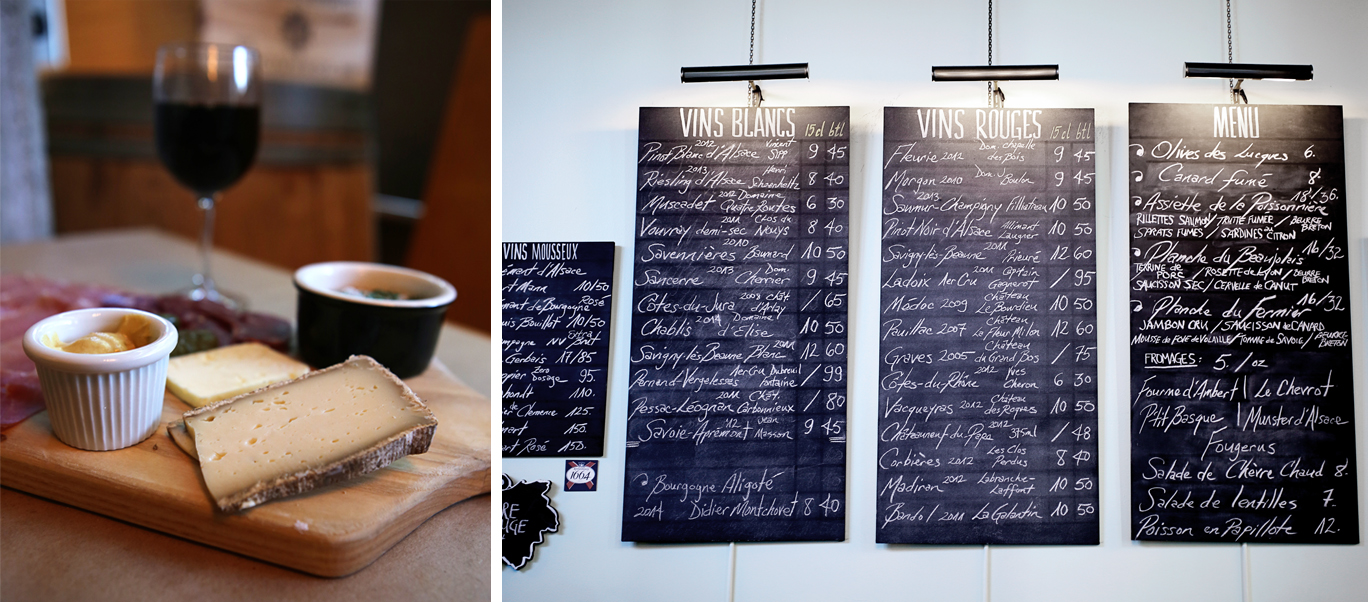 VINS MOUSSEUX
d'Alsace
10/50
de Bourgogne Rosé
Bouillot 10/50
NV Brut
17/85
Zero Dosage 95.
110.
125.
150.
Rosé 150.
1664
VINS BLANCS 15cl btl
Pinot Blanc d'Alsace 2012 Vincent Sipp 9 45
Riesling d'Alsace 2013 Henri 8 40
Muscadet 2012 Domaine Quatre Routes 6 30
Vouvray demi-sec 2011 Clos de Nouys 8 40
Savennières 2010 Baumard 10 50
Sancerre 2013 Dom. Cherier 9 45
Côtes-du-Jura 2009 Chât d'Arlay / 65
Chablis 2011 Domaine d'Elise 10 50
Savigny-lès-Beaune Blanc 2011 12 60
Pernand-Vergelesses 1er Cru Dubreuil Fontaine / 99
Pessac-Léognan 2011 Chât. Carbonnieux / 80
Savoie-Apremont '12 Jean Masson 9 45
Bourgogne Aligoté
2014 Didier Montchovet 8 40
VINS ROUGES 15cl btl
Fleurie 2012 Dom. chapelle des Bois 9 45
Morgon 2010 Dom. J. Boulon 9 45
Saumur-Champigny 2013 Filliatreau 10 50
Pinot Noir d'Alsace Allimant Laugner 10 50
Savigny-lès-Beaune 2011 Prieuré 12 60
Ladoix 1er Cru 2011 Capitain Gagnerot / 95
Médoc 2009 Château Le Bourdieu 10 50
Pauillac 2007 Château La Fleur Milon 12 60
Graves 2005 Château du Grand Bos / 75
Côtes-du-Rhône 2012 Yves Cheron 6 30
Vacqueyras 2012 Château des Roques 10 50
Châteauneuf du Pape 2012 375ml / 48
Corbières 2012 Les Clos Perdus 8 40
Madiran 2012 Labranche-Laffont 10 50
Bandol 2011 La Galantin 10 50
MENU
Olives des Lucques 6.
Canard fumé 8.
Assiette de la Poissonnière 18/36.
RILLETTES SAUMON / TRUITE FUMÉE / BEURRE BRETON
SPRATS FUMÉS / SARDINES CITRON
Planche du Beaujolais 16/32
TERRINE de PORC / ROSETTE de LYON / BEURRE BRETON
SAUCISSON SEC / CERVELLE de CANUT
Planche du Fermier 16/32.
JAMBON CRU / SAUCISSON de CANARD
MOUSSE de FOIE de VOLAILLE / TOMME de SAVOIE / BEURRE BRETON
FROMAGES: 5. / oz
Fourme d'Ambert | Le Chevrot
P'tit Basque | Munster d'Alsace
Fougerus
Salade de Chèvre Chaud 8.
Salade de lentilles 7.
Poisson en Papillote 12.